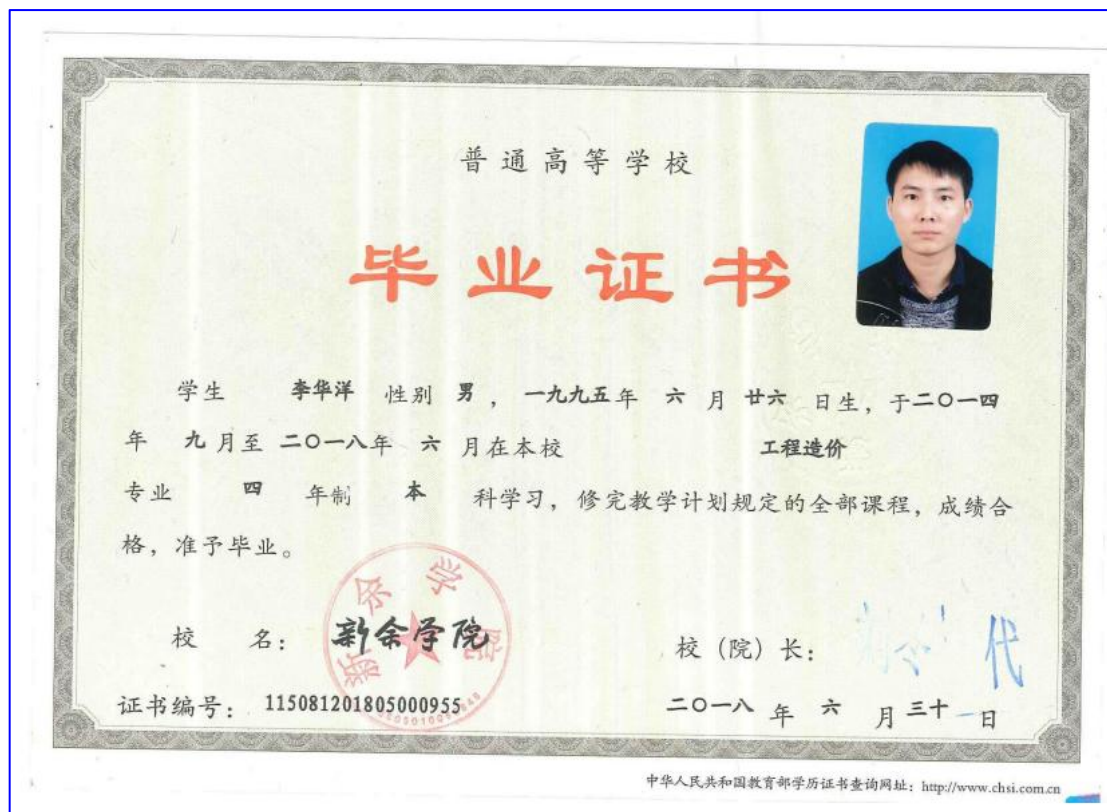 普通高等学校
毕业证书
学生 李华洋 性别 男 , 一九九五年 六 月 廿六 日生, 于二〇一四
年 九月至 二〇一八年 六 月在本校 工程造价
专业 四 年制 本 科学习, 修完教学计划规定的全部课程, 成绩合
格, 准予毕业。
新余学院
校 名: 新余学院
校（院）长: 代
证书编号: 115081201805000955
二〇一八 年 六 月 三十 日
中华人民共和国教育部学历证书查询网址: http://www.chsi.com.cn